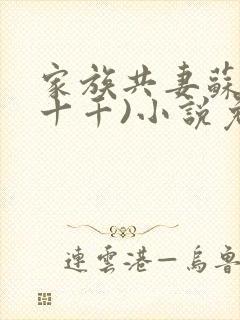 家族共妻蘇
十干)小說
連雲港—烏魯